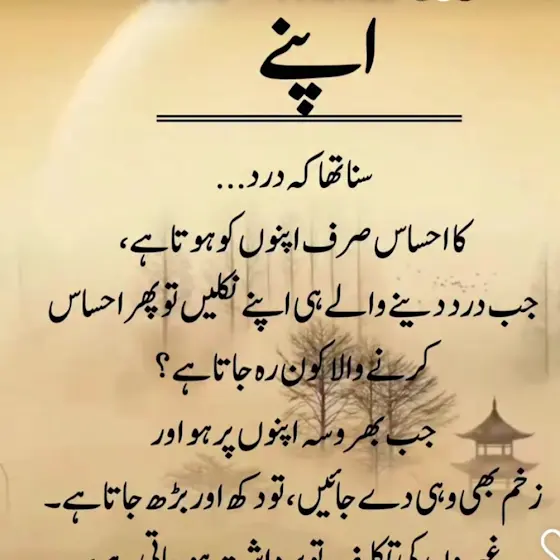 اپنے
سنا تھا کہ درد...
کا احساس صرف اپنوں کو ہوتا ہے،
جب درد دینے والے ہی اپنے نکلیں تو پھر احساس
کرنے والا کون رہ جاتا ہے؟
جب بھروسہ اپنوں پر ہو اور
زخم بھی وہی دے جائیں، تو دکھ اور بڑھ جاتا ہے۔